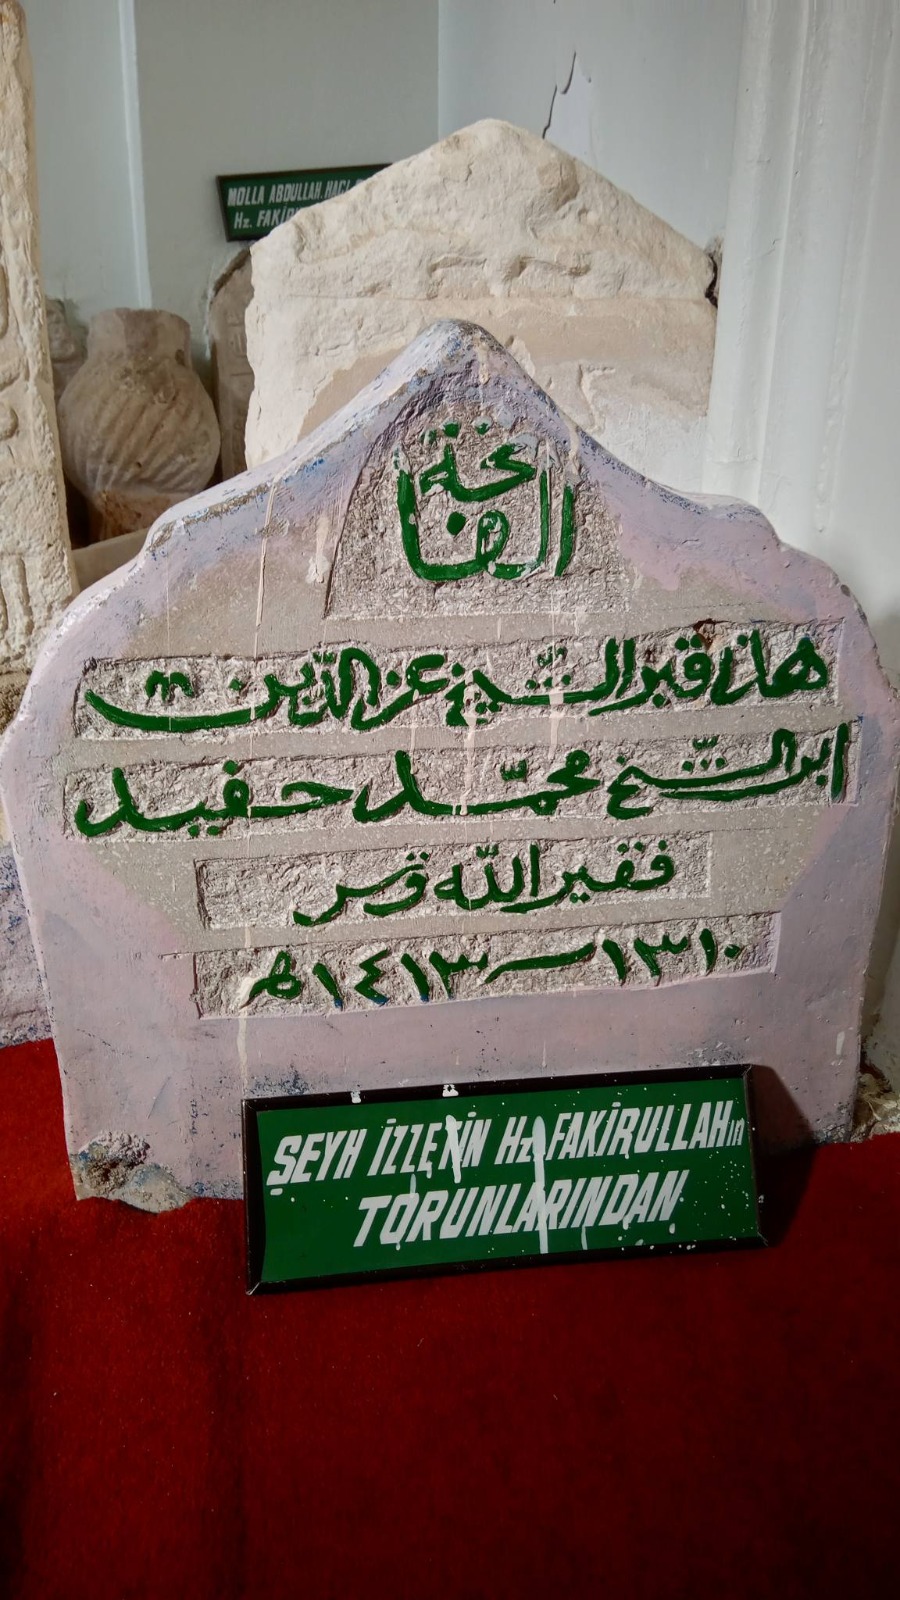 MOLLA ABDULLAH. HACI
Hz. FAKİR
الفاتحة
هذا قبر الشيخ عز الدين
ابن الشيخ محمّد حفيد
فقير اللّه قس
١٣١٠ – ١٤١٣ هـ
ŞEYH İZZETİN Hz. FAKİRULLAHın
TORUNLARINDAN